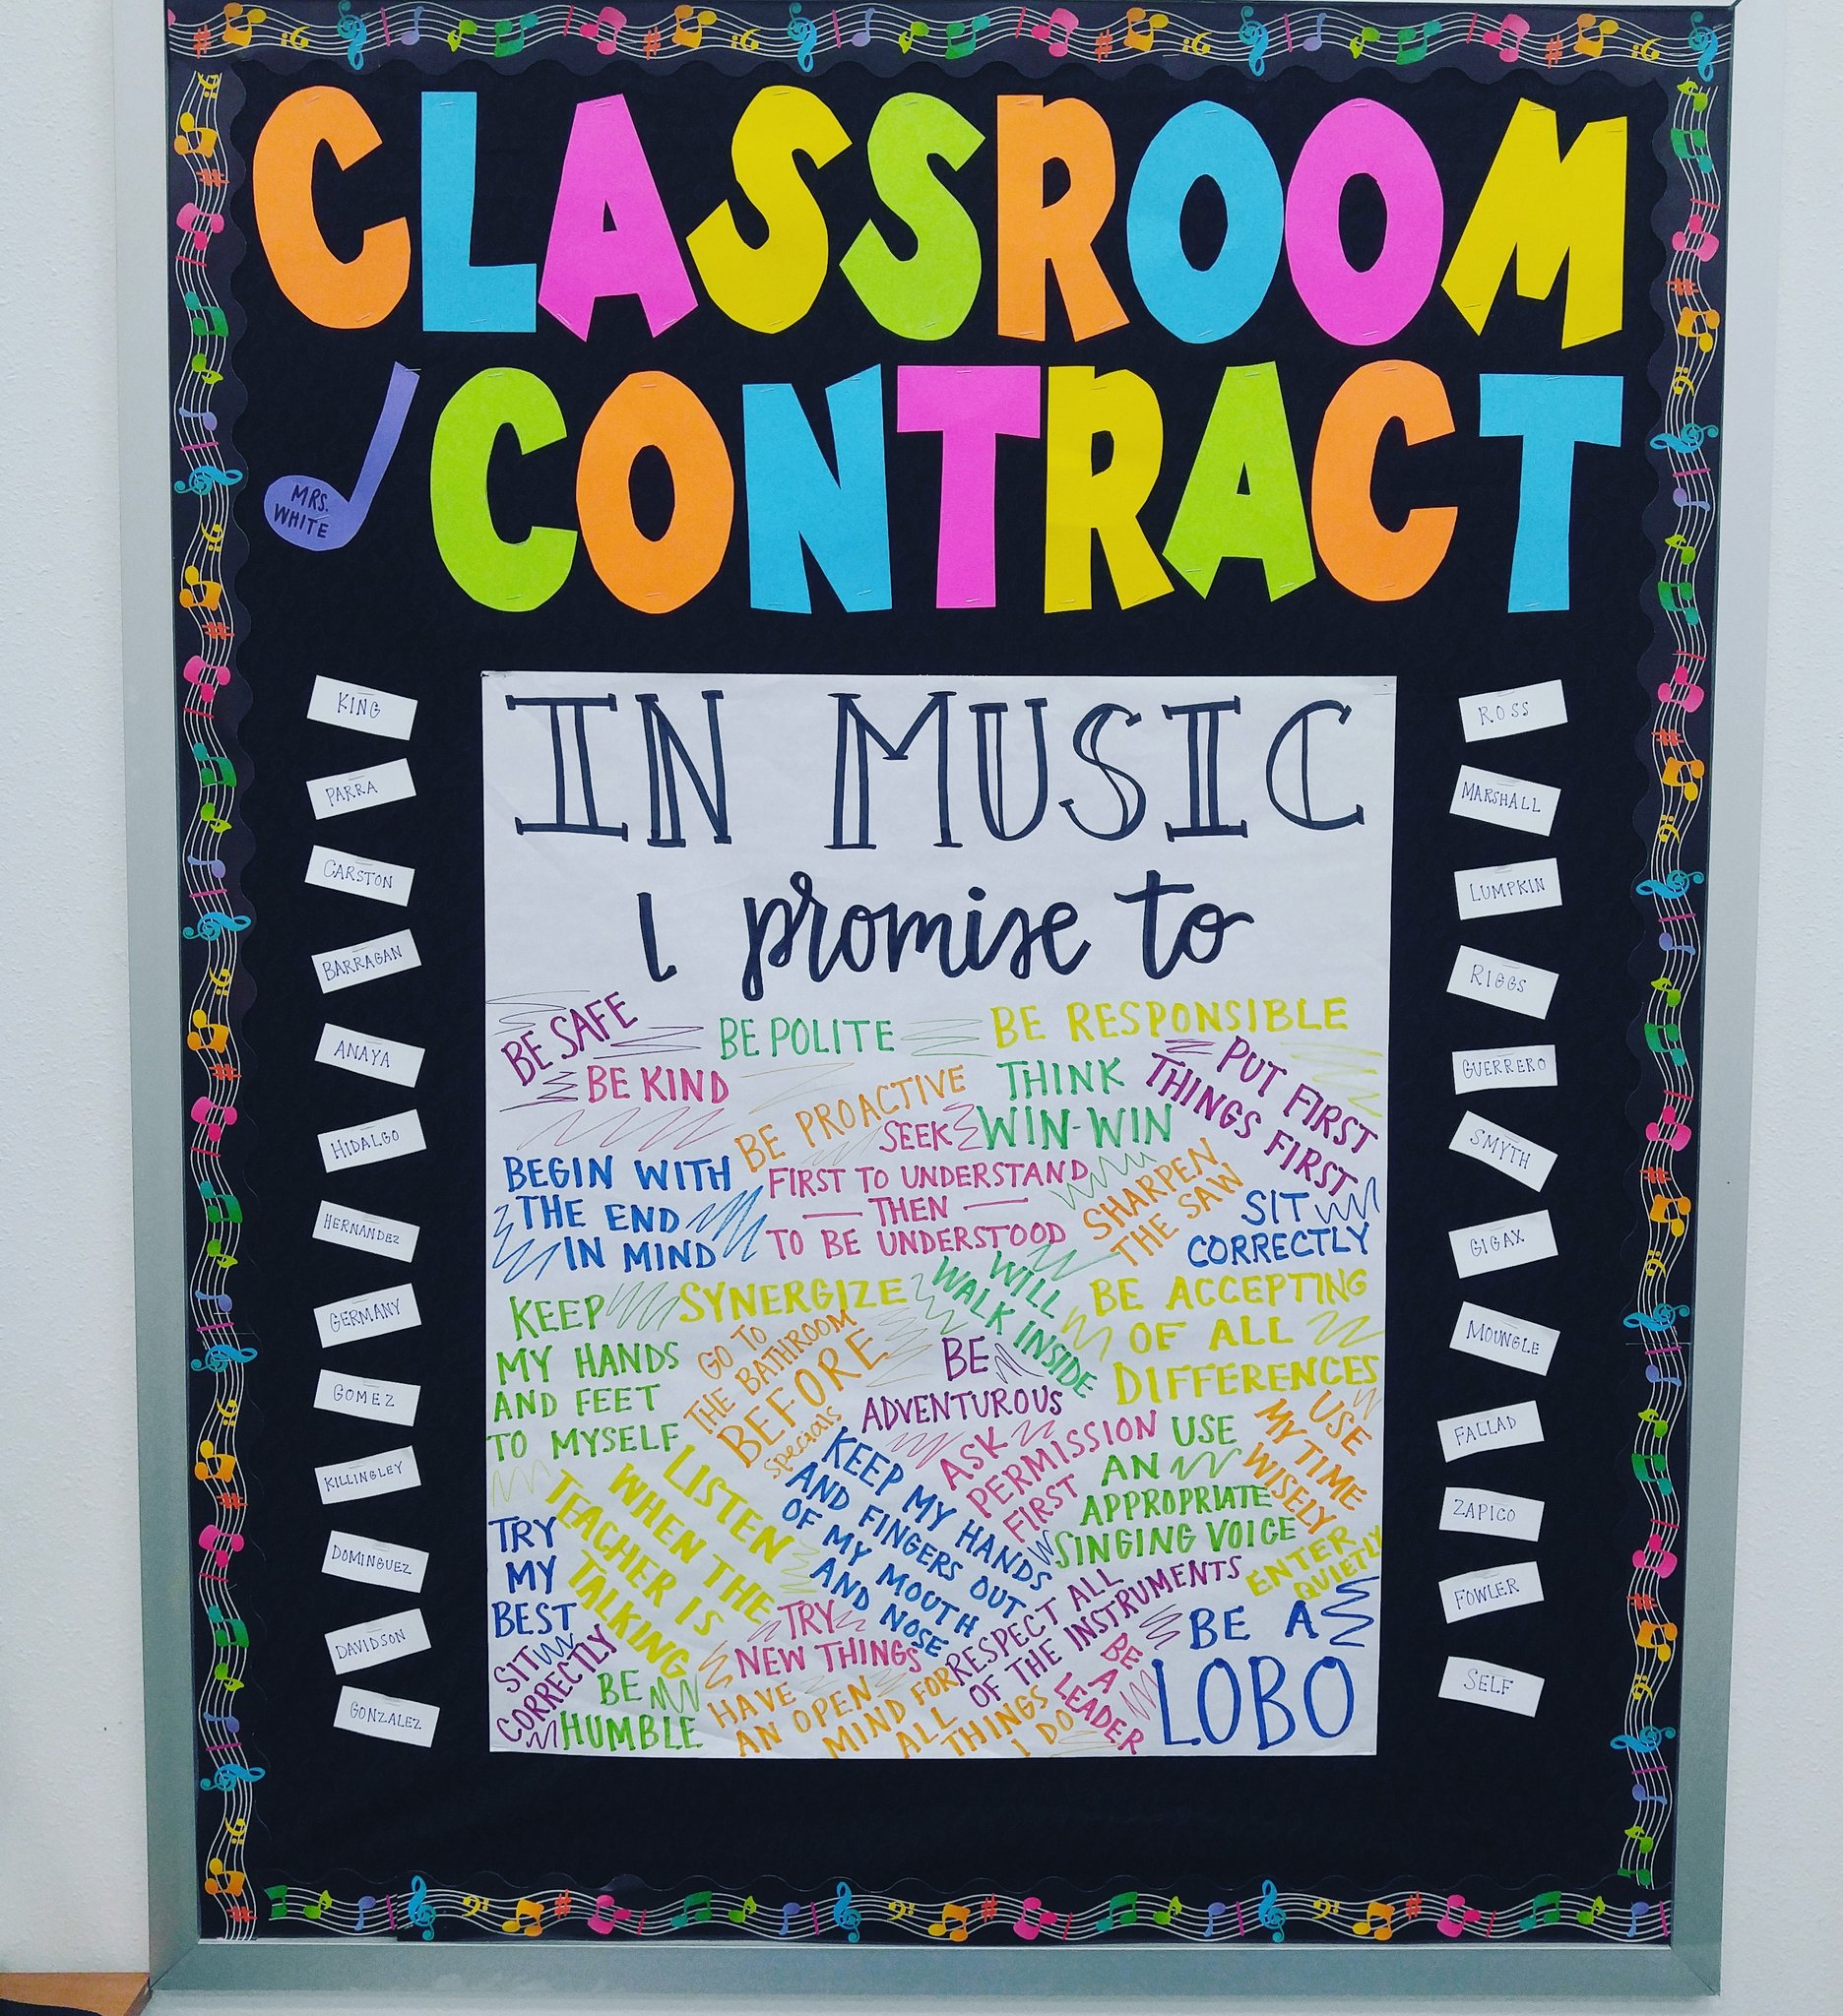 CLASSROOM
CONTRACT
MRS.
WHITE
KING
PARRA
CARSTON
BARRAGAN
ANAYA
HIDALGO
HERNANDEZ
GERMANY
GOMEZ
KILLINGLEY
DOMINGUEZ
DAVIDSON
GONZALEZ
IN MUSIC
I promise to
BE SAFE
BE POLITE
BE RESPONSIBLE
BE KIND
BE PROACTIVE
THINK
WIN-WIN
PUT FIRST
THINGS FIRST
BEGIN WITH
THE END
IN MIND
SEEK
FIRST TO UNDERSTAND
THEN
TO BE UNDERSTOOD
SHARPEN
THE SAW
SIT
CORRECTLY
KEEP
MY HANDS
AND FEET
TO MYSELF
SYNERGIZE
WILL
WALK INSIDE
BE ACCEPTING
OF ALL
DIFFERENCES
GO TO
THE BATHROOM
BEFORE
specials
BE
ADVENTUROUS
ASK
PERMISSION
FIRST
USE
AN
APPROPRIATE
SINGING VOICE
USE
MY TIME
WISELY
LISTEN
WHEN THE
TEACHER IS
TALKING
KEEP MY HANDS
AND FINGERS OUT
OF MY MOUTH
AND NOSE
ENTER
QUIETLY
TRY
MY
BEST
TRY
NEW THINGS
RESPECT ALL
OF THE INSTRUMENTS
SIT
CORRECTLY
BE
HUMBLE
HAVE
AN OPEN
MIND FOR
ALL
THINGS
I DO
BE
A
LEADER
BE A
LOBO
ROSS
MARSHALL
LUMPKIN
RIGGS
GUERRERO
SMYTH
GIGAX
MOUNGLE
FALLAD
ZAPICO
FOWLER
SELF